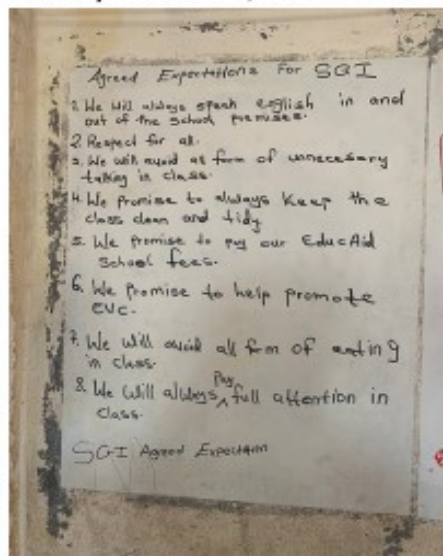 Agreed Expectations For SGI
1. We will always speak english in and
out of the school premises.
2. Respect for all.
3. We will avoid all form of unnecesary
talking in class.
4. We promise to always keep the
class clean and tidy
5. We promise to pay our EducAid
School fees.
6. We Promise to help promote
EVC.
7. We will avoid all form of eating
in class.
Pay
8. We will always ^ full attention in
class.
SGI Agreed Expectation